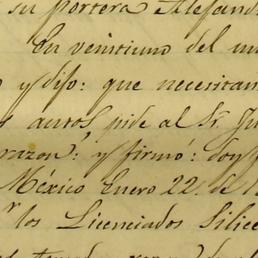 su portera Alejand
En veintiuno del m
y dijo: que necesitan
autos, pide al Sr. Ju
razon; y firmó: doy f
México Enero 22. de 1
los Licenciados Silice